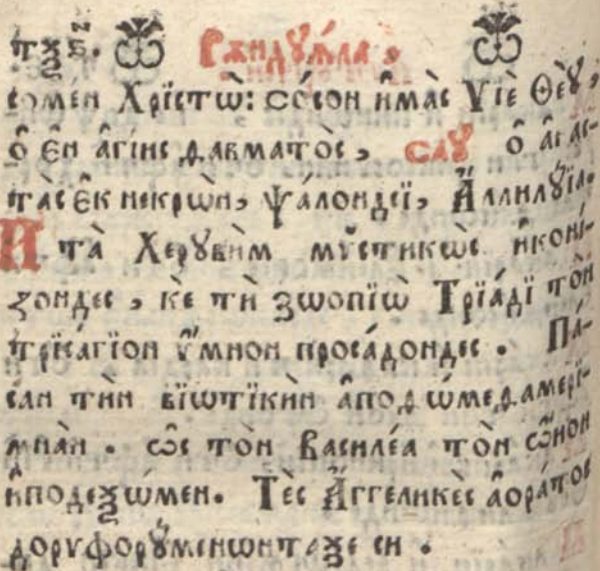 тѯ҃в. Рѫндꙋѧла,
сомен Хрїстѡ: сѡ́сон и҆мàс Ѵ҆їѐ Ѳеꙋ̀,
ѻ҆̀ є҆н а҆гі́ис давматòс, саꙋ ѻ҆̀ а҆нас-
тàс є҆́к некрѡ̀н, ѱáлондеї, А҆ллилꙋ́їа.
И тà Херꙋви́м мѵстикѡ̀с и҆коні-
зондес, кѐ ти̇̀ зѡопїѡ̀ Трїáдї тòн
трїсáгїон ѵ҆́мнон просáдондес. Пá-
сан ти̇̀н вїѡтїки̇̀н а҆подѡ́меда мерї-
мнàн. ѡ҆̀с тòн Василéа тѡ̀н ѡ҆́лон
и҆подеѯѡ́мен. Тèс А҆ггеликѐс а҆орáтос
дорѵфорꙋ́менѡн таѯеси.